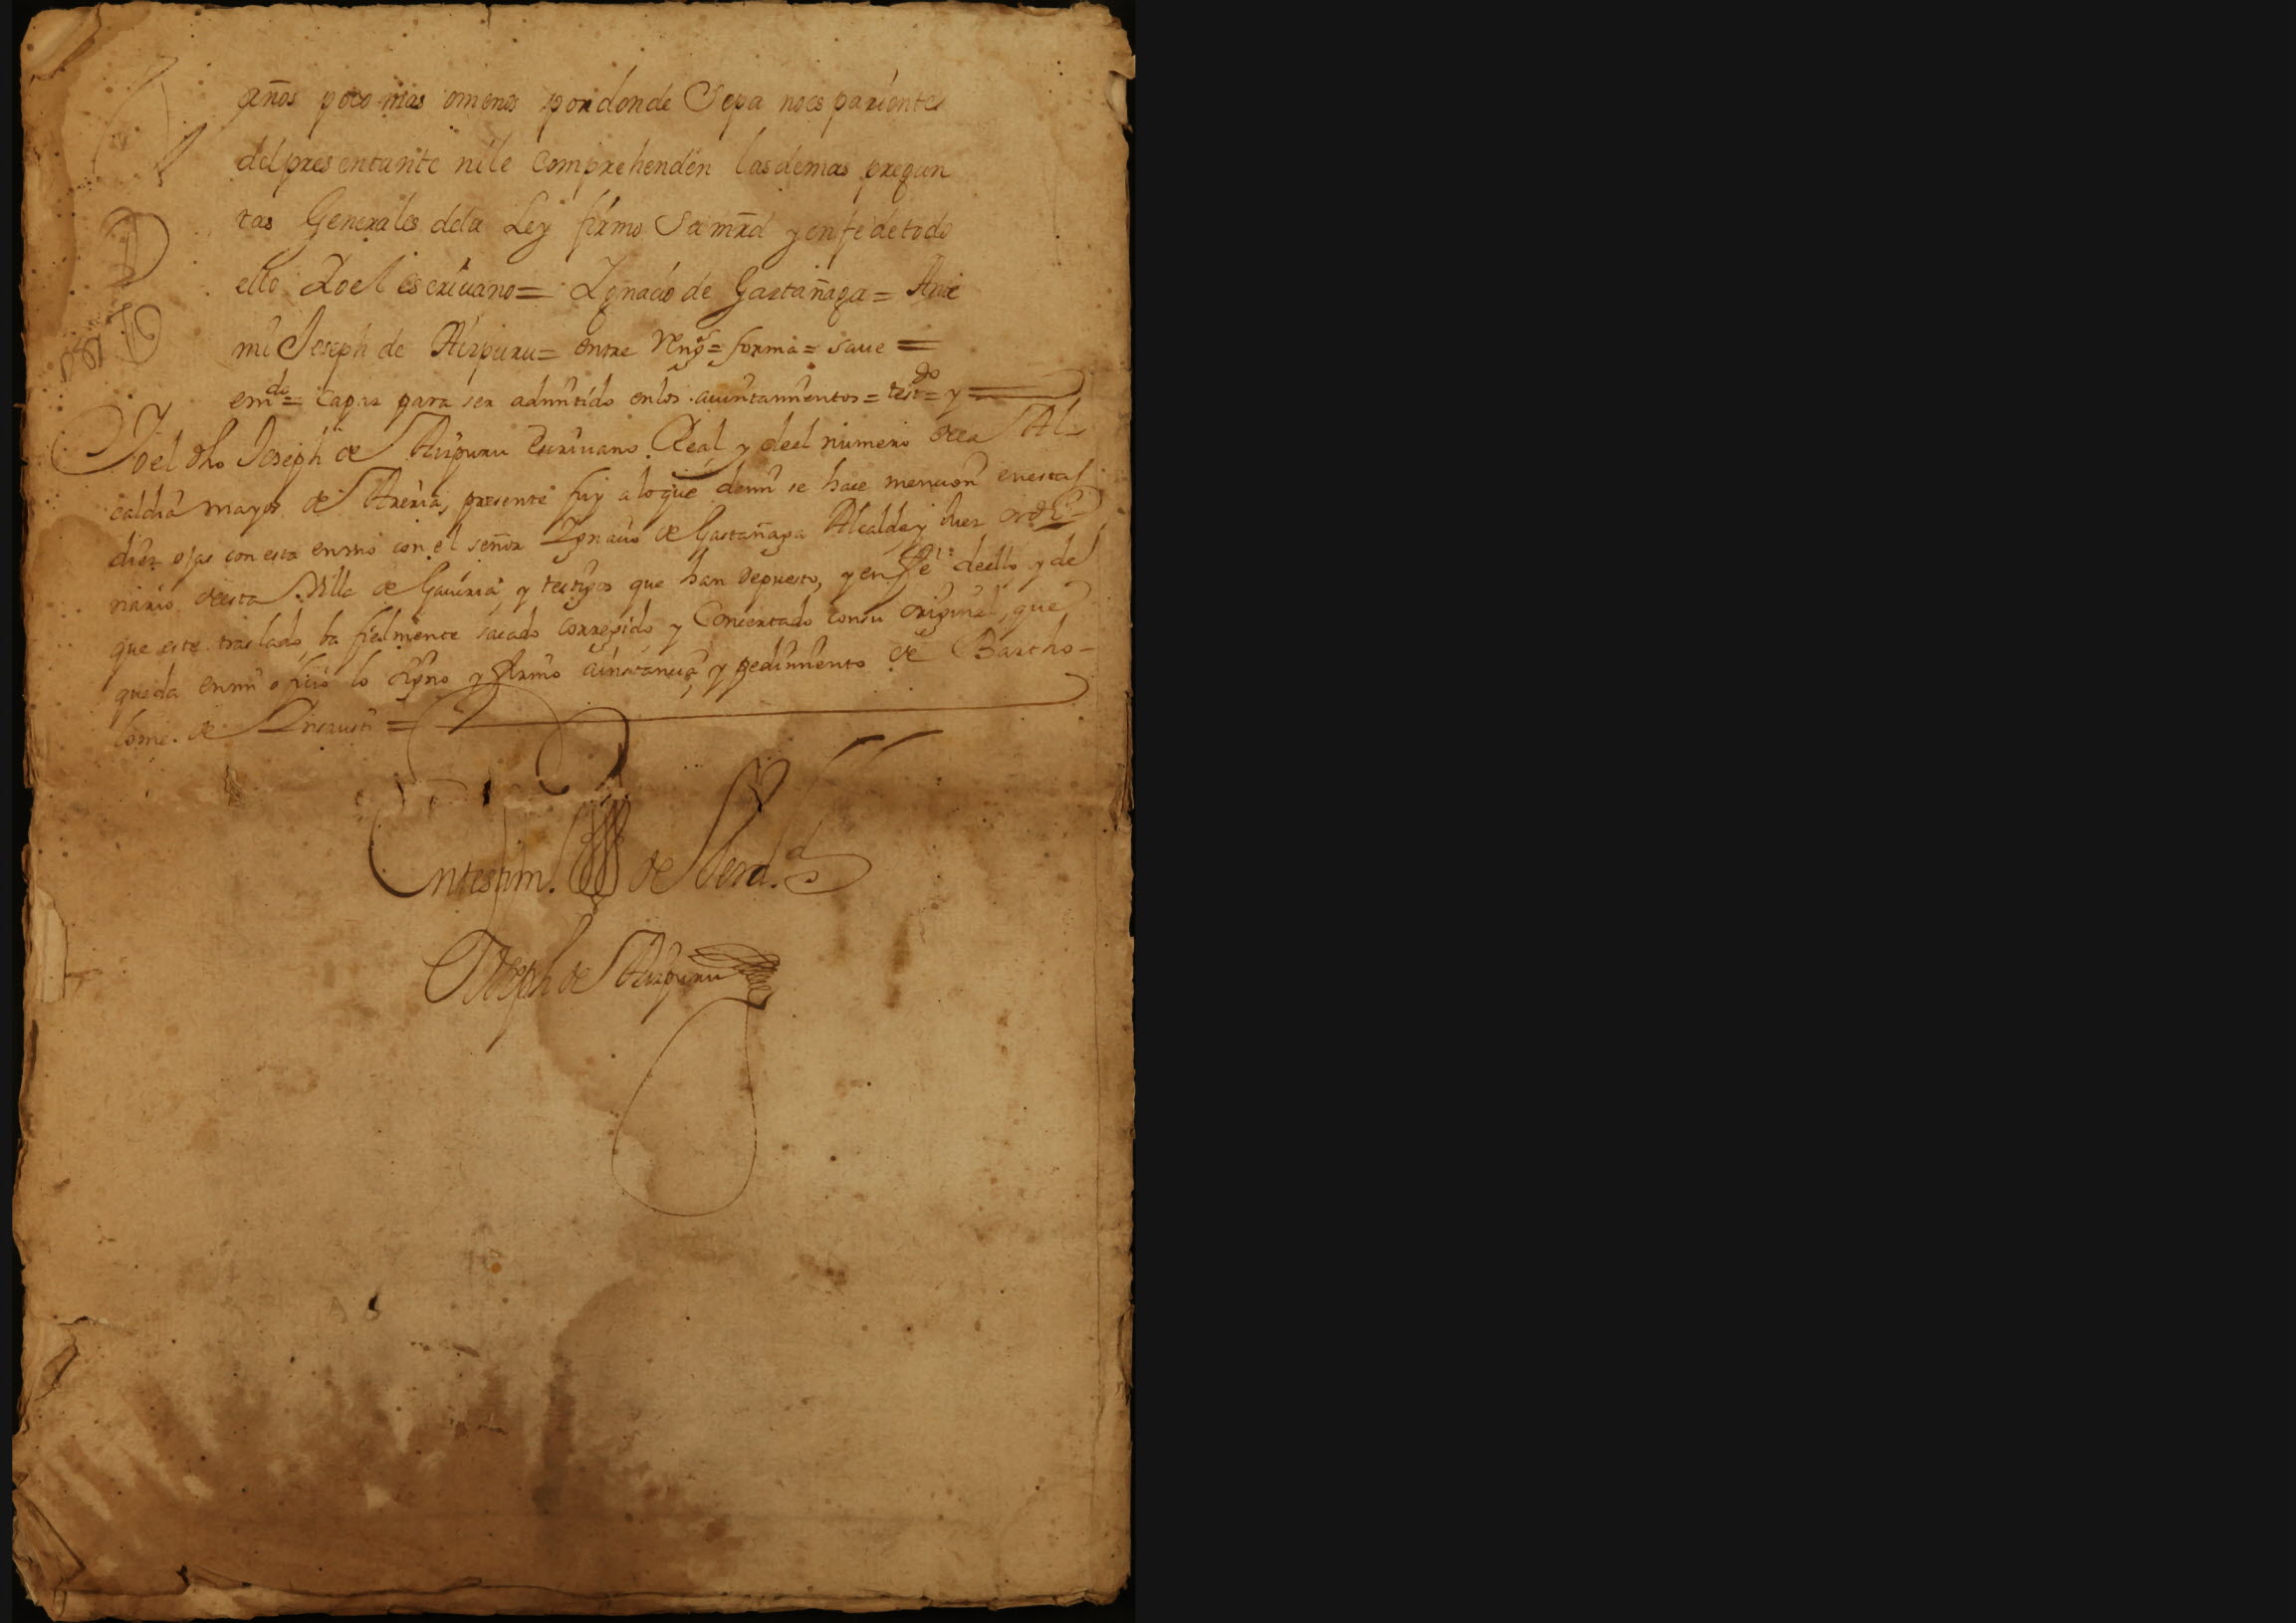 años poco mas omenos pordonde Sepa noes pariente
delpresentante nile Comprehenden lasdemas pregun
tas Generales dela Ley firmo Sa mrd y enfe detodo
ello Yoel escriuano = Ygnacio de Gastañaga = Ante
mi Joseph de Aizpuru = entre Rengs = forma = saue =
emdo = Capaz para ser admitido enlos auintamientos = testdo = y =
Yoel dho Joseph de Aizpuru Escriuano Real y deel numero dela Al-
caldia mayor de Areria, presente fuy aloque demi se hace mencion enestas
diez ojas con esta enuno con el señor Ygnacio de Gastañaga Alcalde y Juez ordi-
nario deesta Villa de Gauiria y testigos que han depuesto, y en fe deello y de
que este traslado ba fielmente sacado corregido y Concertado consu original, que
queda enmi oficio lo signo y firmo ainstancia y pedimiento de Bartho-
lome de =
Entestim. de Verd.d
Joseph de Aizpuru